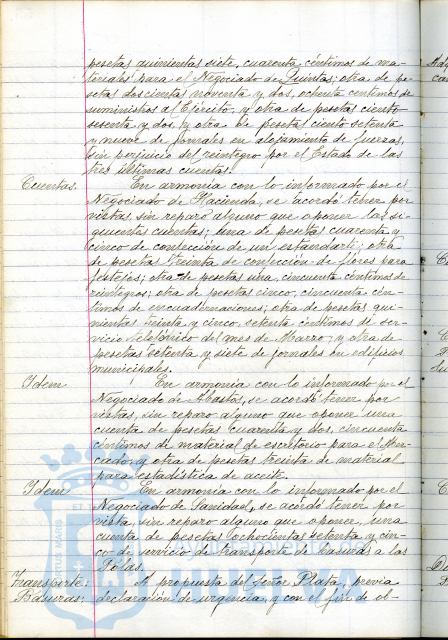 pesetas quinientas siete, cuarenta céntimos de ma-
teriales para el Negociado de Quintas; otra de pe-
setas doscientas noventa y dos, ochenta céntimos de
suministros al Ejército, y otra de pesetas ciento
sesenta y dos, y otra de pesetas ciento setenta
y nueve de jornales en alojamiento de fuerzas,
sin perjuicio del reintegro por el Estado de las
tres últimas cuentas.
Cuentas. En armonia con lo informado por el
Negociado de Hacienda, se acordó tener por
vistas, sin reparo alguno que oponer las si-
guientes cuentas; una de pesetas cuarenta y
cinco de confección de un estandarte; otra
de pesetas treinta de confección de flores para
festejos; otra de pesetas una, cincuenta céntimos de
reintegros; otra de pesetas cinco, cincuenta cén-
timos de encuadernaciones; otra de pesetas qui-
nientas treinta y cinco, setenta céntimos de ser-
vicio telefónico del mes de Marzo; y otra de
pesetas setenta y siete de jornales en edificios
municipales.
Idem En armonia con lo informado por el
Negociado de Abastos, se acordó tener por
vistas, sin reparo alguno que oponer una
cuenta de pesetas cuarenta y dos, cincuenta
céntimos de material de escritorio para el Mer-
cado, y otra de pesetas treinta de material
para estadística de aceite.
Idem En armonia con lo informado por el
Negociado de Sanidad, se acordó tener por
vista, sin reparo alguno que oponer, una
cuenta de pesetas ochocientas setenta y cin-
co de servicio de transporte de basuras a las
Tolas.
Transporte: A propuesta del señor Plata, previa
Basuras: declaración de urgencia, y con el fin de ob-